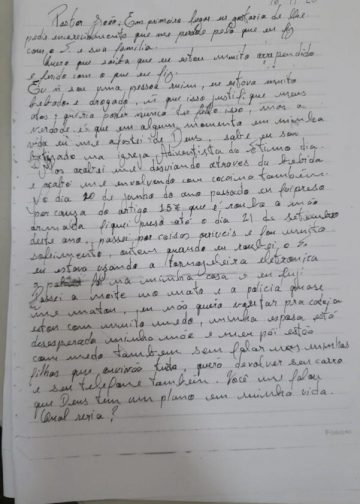 Pastor João. Em primeiro lugar eu gostaria de lhe
pedir encarecidamente que me perdoe pelo que eu fiz
com o S. e sua família.
Quero que saiba que eu estou muito arrependido
e dendo com o que eu fiz.
Eu ñ sou uma pessoa ruim, eu estava muito
bebado e drogado, ñ que isso justifique meus
atos; queria poder nunca ter feito isso, mas a
verdade é que em algum momento em minha
vida eu me afastei de Deus, sabe eu sou
batizado na igreja Adventista do sétimo dia.
mas acabei me desviando através da bebida
e acabei me envolvendo com cocaína também.
No dia 20 de junho do ano passado eu fui preso
por causa do artigo 157 que é roubo a mão
armada fiquei preso até o dia 21 de setembro
deste ano, passei por coisas horiveis e foi muito
sofrimento, ontem quando eu roubei o S.
eu estava usando a tornozeleira eletronica
a foi na minha casa e eu fugi
Passei a noite no mato e a policia quase
me matou, eu não quero voltar pra cadeia
estou com muito medo, minha esposa está
desesperada minha mãe e meu pai estão
com medo também sem falar nas minhas
filhas que ouviram tudo, quero devolver seu carro
e seu telefone também. Você me falou
que Deus tem um plano em minha vida.
Qual seria?